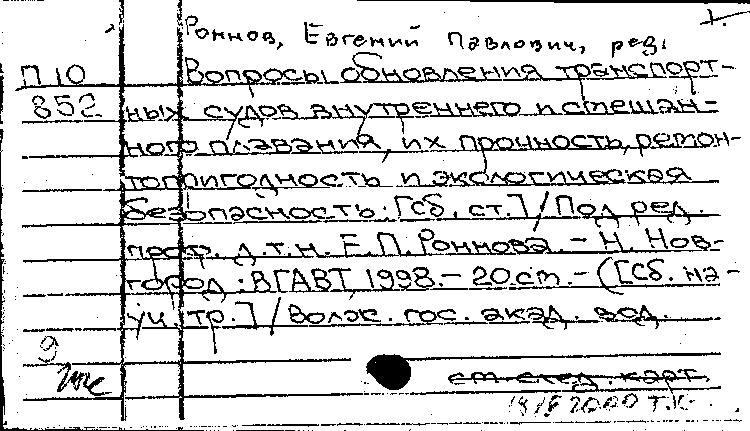 Роннов, Евгений Павлович, ред.
П10 Вопросы обновления транспорт-
852 ных судов внутреннего и смешан-
ного плавания, их прочность, ремон-
топригодность и экологическая
безопасность: [Сб. ст.] / Под ред.
проф. д.т.н. Е.П. Роннова. - Н. Нов-
город: ВГАВТ, 1998. - 20 см. - ([Сб. на-
уч. тр.] / Волж. гос. акад. вод.
9
см. след. карт.
2000 т.к.